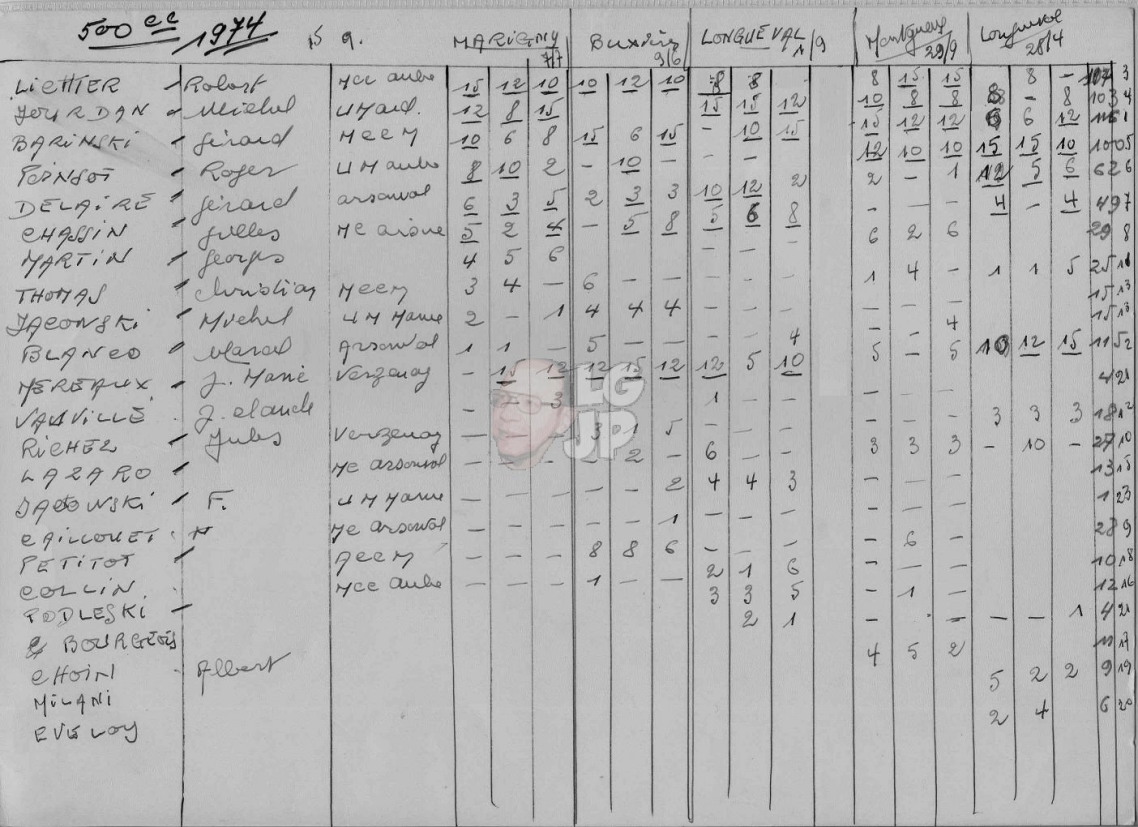 500 cc 1974 15 9. MARIGNY 7/7 Buxières 9/6 LONGUEVAL 1/9 Montgueux 29/9 Longueval 28/4
LICHTER Robert Mcc aube 15 12 10 10 12 10 8 8 8 15 15 8 - 107 3
JOURDAN Michel UMaud. 12 8 15 15 15 12 10 8 8 8 - 8 103 4
BARINSKI Gérard MCCM 10 6 8 15 6 15 - 10 15 15 12 12 6 6 12 1
POINSOT Roger UM aube 8 10 2 - 10 - - - - 12 10 10 15 15 10 100 5
DELAIRE Gérard arsonval 6 3 5 2 3 3 10 12 2 2 - 1 12 5 6 62 6
CHASSIN Gilles Mc aisne 5 2 4 - 5 8 5 6 8 - - - 4 - 4 49 7
MARTIN Georges 4 5 6 - - - 6 2 6 29 8
THOMAS Christian MCCM 3 4 - 6 - - - - - 1 4 - 1 1 5 25 11
JACONSKI Michel UM Marne 2 - 1 4 4 4 - - - - - - 15 13
BLANCO Marcel Arsonval 1 1 - 5 - - - - 4 - - 4 15 13
MEREAUX J. Marie Verzenay - 15 12 12 15 12 12 5 10 5 - 5 10 12 15 115 2
VAUVILLE J. claude - - 3 1 - - - 4 21
RICHEZ Jules Verzenay - - - 3 1 5 - - - - - - 3 3 3 18 12
LAZARO Mc arsonval - - - - 2 - 6 - - 3 3 3 - 10 - 27 10
JACONSKI F. UM Marne - - - - - 2 4 4 3 - - - 13 15
CAILLOUET Mc arsonval - - - - - 1 - - - - - - 1 23
PETITOT ACCM - - - 8 8 6 - - - - 6 - 28 9
COLLIN Mcc aube - - - 1 - - 2 1 6 - - - 10 18
PODLESKI 3 3 5 - 1 - 12 16
BOURGEOIS 2 1 - - - - - 1 4 21
CHOIN Albert 4 5 2 11 17
MILANI 5 2 2 9 19
EVELOY 2 4 6 20
LG
JP